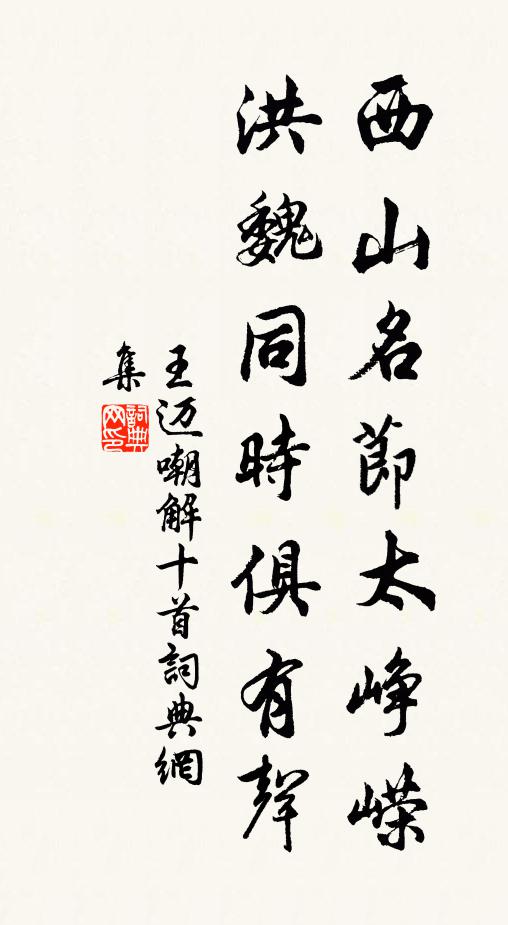 西山名節太峥嵘
洪魏同時俱有聲
王迈嘲解十首詞典網
集
詞典網印